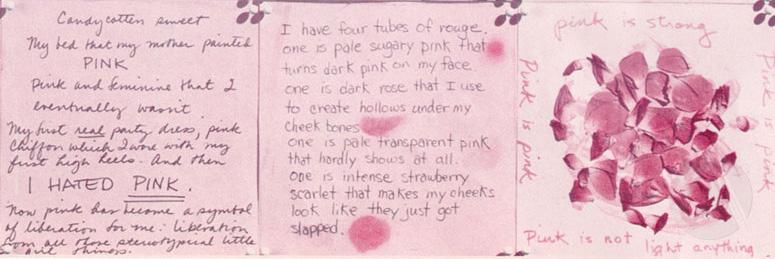 Candycotten sweet
My bed that my mother painted
PINK
Pink and feminine that I
eventually wasn't
My first real party dress, pink
chiffon which I wore with my
first high heels. And then
I HATED PINK.
Now pink has become a symbol
of liberation for me: liberation
from all those stereotypical little
girl things.
I have four tubes of rouge.
one is pale sugary pink that
turns dark pink on my face
one is dark rose that I use
to create hollows under my
cheek bones
one is pale transparent pink
that hardly shows at all.
one is intense strawberry
scarlet that makes my cheeks
look like they just got
slapped.
pink is strong
Pink is pink
Pink is pink
Pink is not light anything